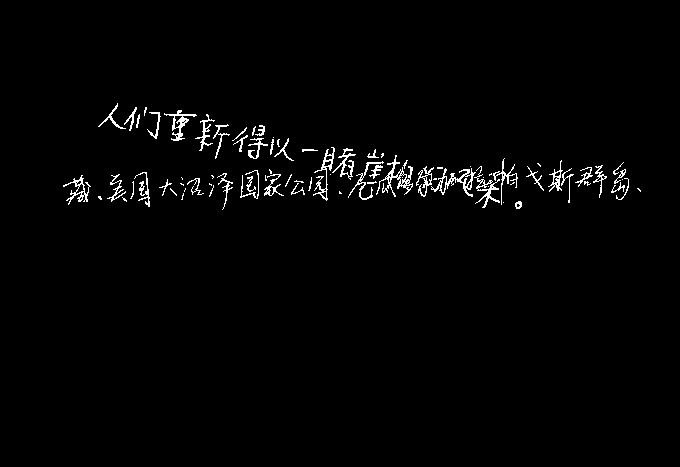 人们重新得以一睹崖柏
藏、美国大沼泽国家公园、厄瓜帕戈斯群岛、